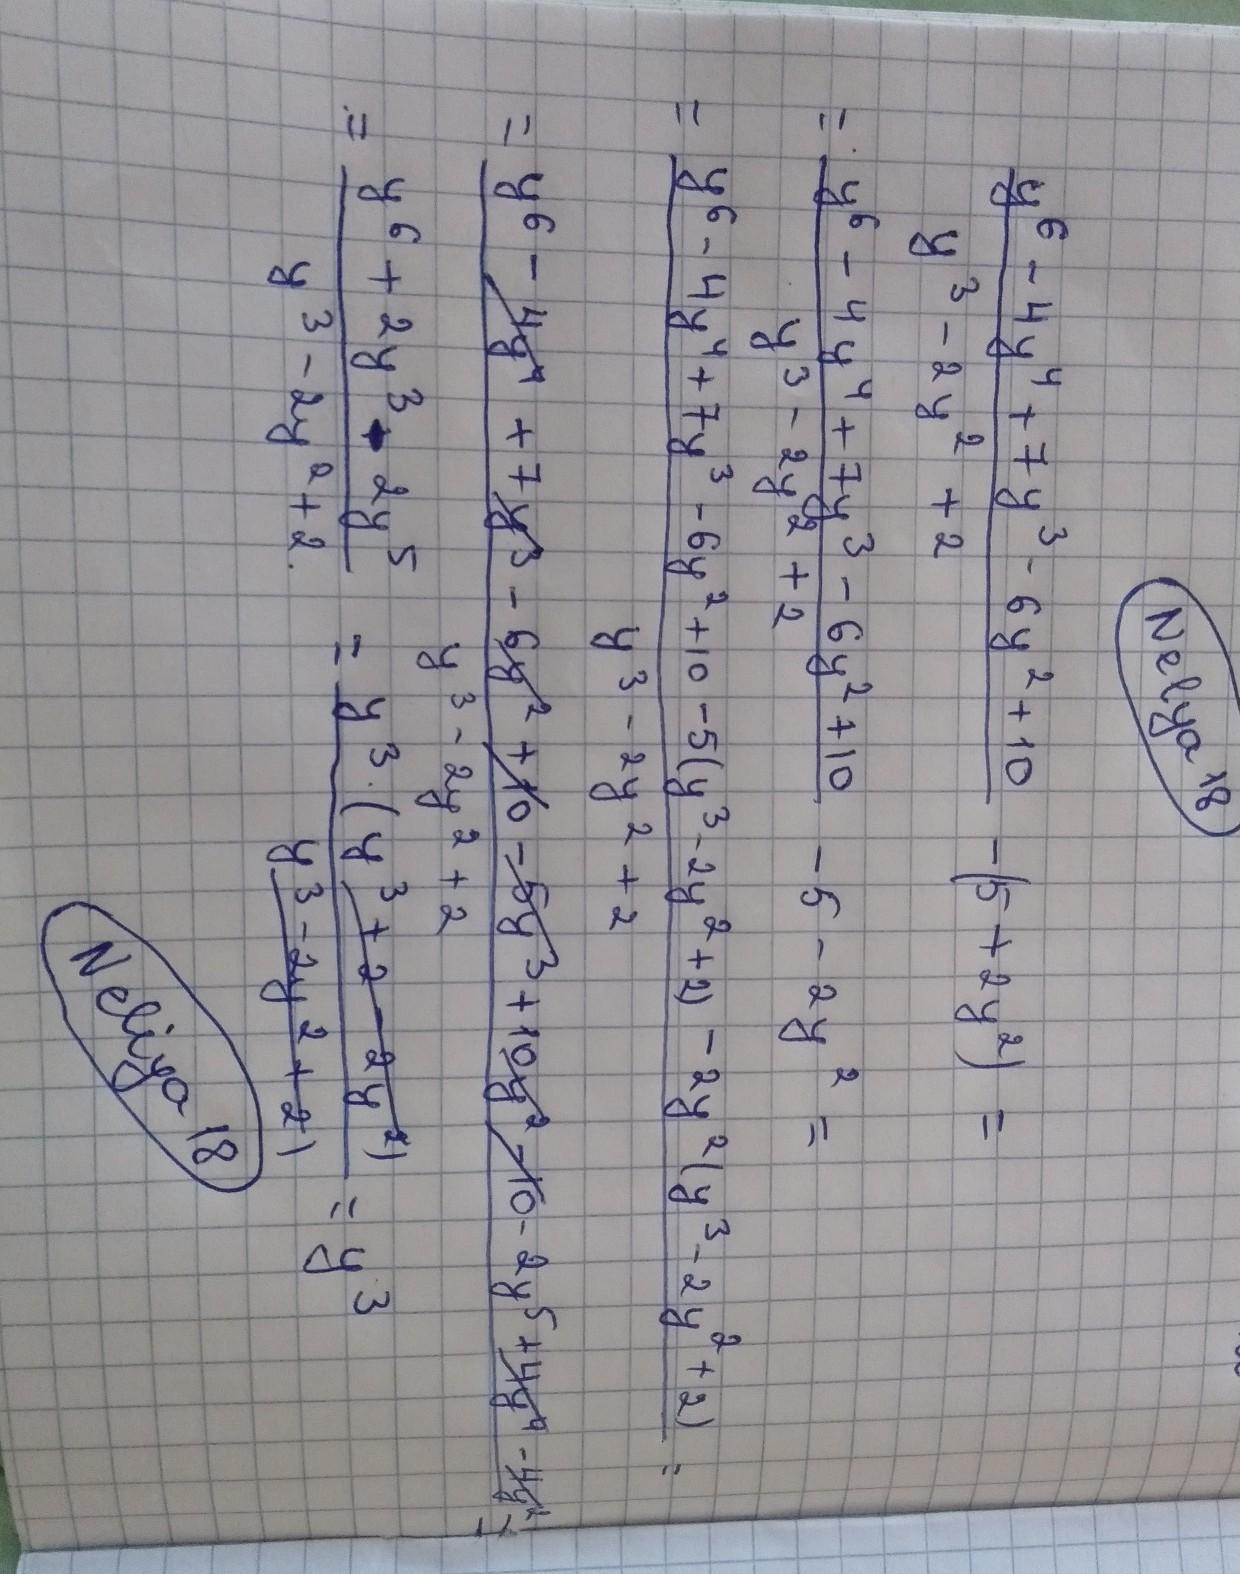 Nelya18
y⁶ - 4y⁴ + 7y³ - 6y² + 10 -(5 + 2y²) =
y³ - 2y² + 2
= y⁶ - 4y⁴ + 7y³ - 6y² + 10 - 5 - 2y² =
y³ - 2y² + 2
= y⁶ - 4y⁴ + 7y³ - 6y² + 10 - 5(y³ - 2y² + 2) - 2y²(y³ - 2y² + 2) =
y³ - 2y² + 2
= y⁶ - 4y⁴ + 7y³ - 6y² + 10 - 5y³ + 10y² - 10 - 2y⁵ + 4y⁴ - 4y² =
y³ - 2y² + 2
= y⁶ + 2y³ - 2y⁵ = y³ · (y³ + 2 - 2y²) = y³
y³ - 2y² + 2. y³ - 2y² + 2)
Neliya 18